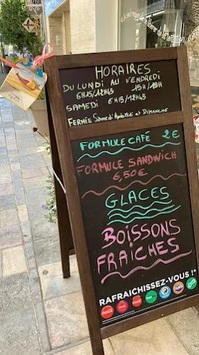 HORAIRES
DU LUNDI AU VENDREDI
6H15/12H45 15H/19H
SAMEDI 6H15/12H45
FERMÉE
FORMULE CAFÉ 2€
FORMULE SANDWICH
6,50€
GLACES
BOISSONS
FRAÎCHES
RAFRAICHISSEZ-VOUS !